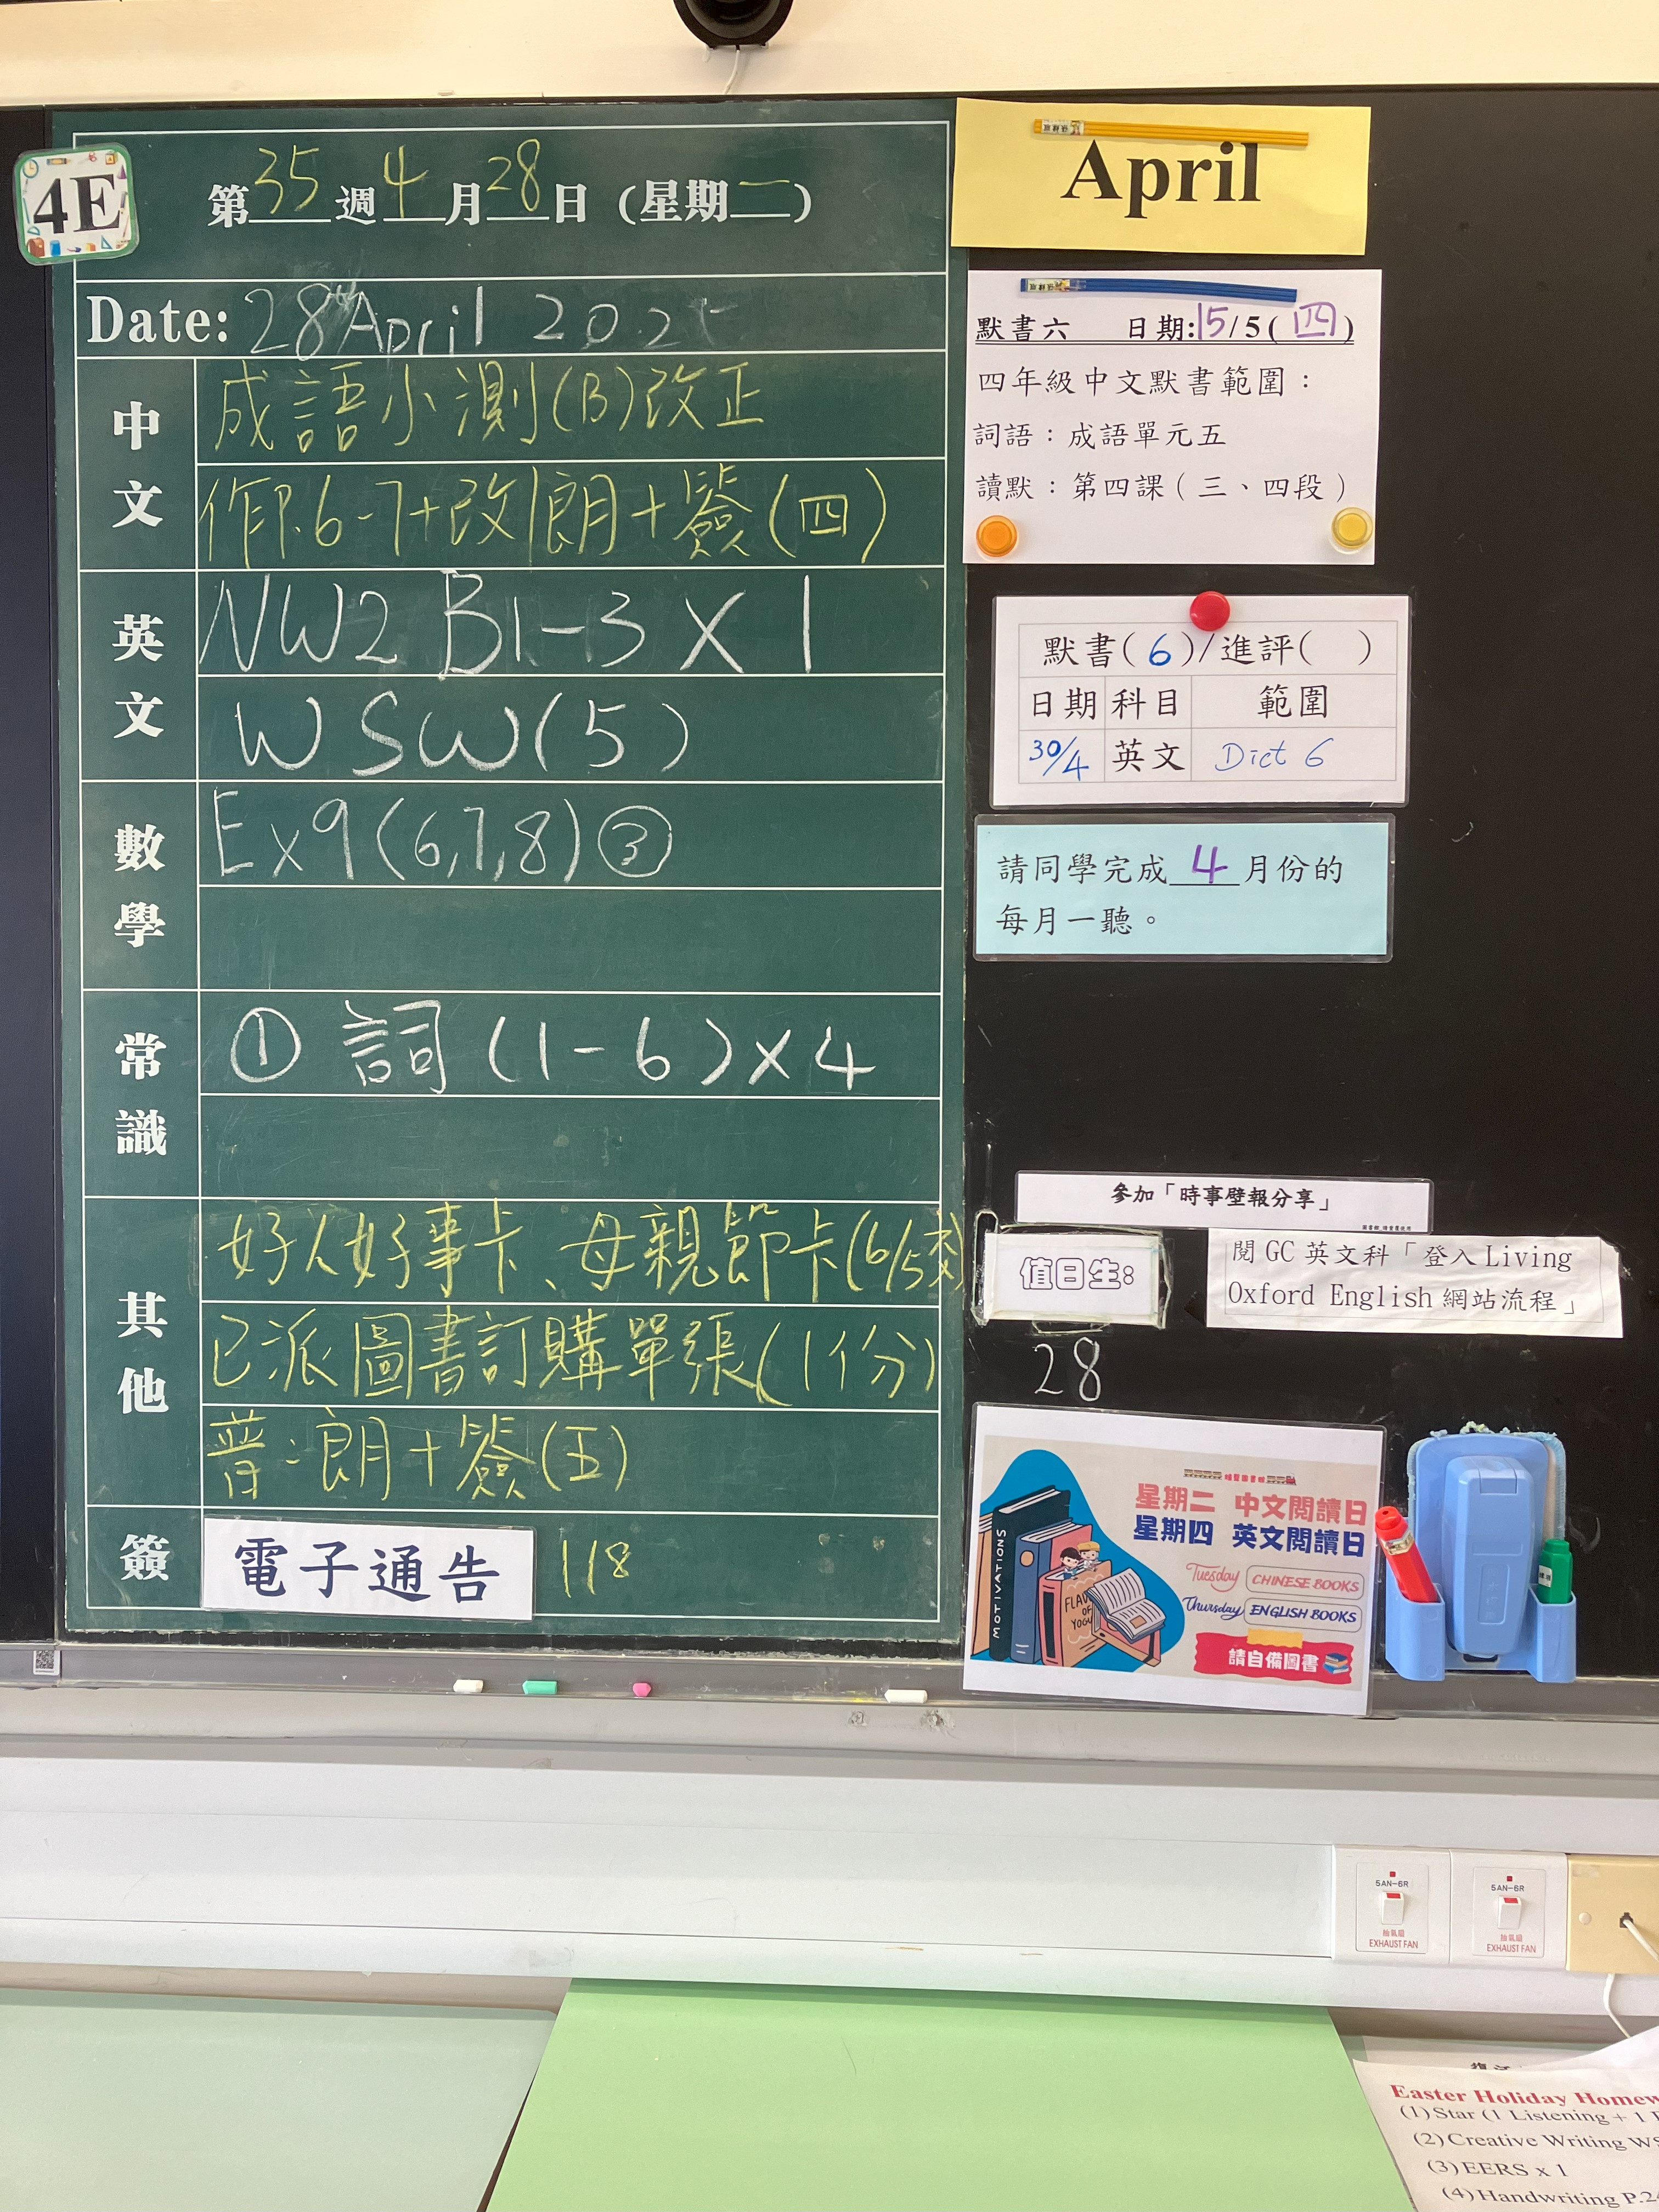 4E
第35週4月28日(星期一)
Date: 28 April 2025
中文
成語小測(B)改正
作P.6-7+改 朗+簽(四)
英文
NW2 B1-3 X 1
WSW(5)
數學
Ex9(6,7,8)③
常識
① 詞(1-6)x4
其他
好人好事卡、母親節卡(6/5交)
已派圖書訂購單張(1份)
普:朗+簽(五)
簽
電子通告 118
April
默書六 日期:15/5(四)
四年級中文默書範圍:
詞語:成語單元五
讀默:第四課(三、四段)
默書(6)/進評( )
日期 科目 範圍
30/4 英文 Dict 6
請同學完成4月份的
每月一聽。
參加「時事壁報分享」
值日生:
28
閱 GC 英文科「登入 Living
Oxford English 網站流程」
星期二 中文閱讀日
星期四 英文閱讀日
Tuesday CHINESE BOOKS
Thursday ENGLISH BOOKS
請自備圖書
MOTIVATIONS
5AN-6R
抽氣扇
EXHAUST FAN
5AN-6R
抽氣扇
EXHAUST FAN
Easter Holiday
(1)Star (1 Listening + 1
(2)Creative Writing
(3)EERS x 1
(4)Handwriting